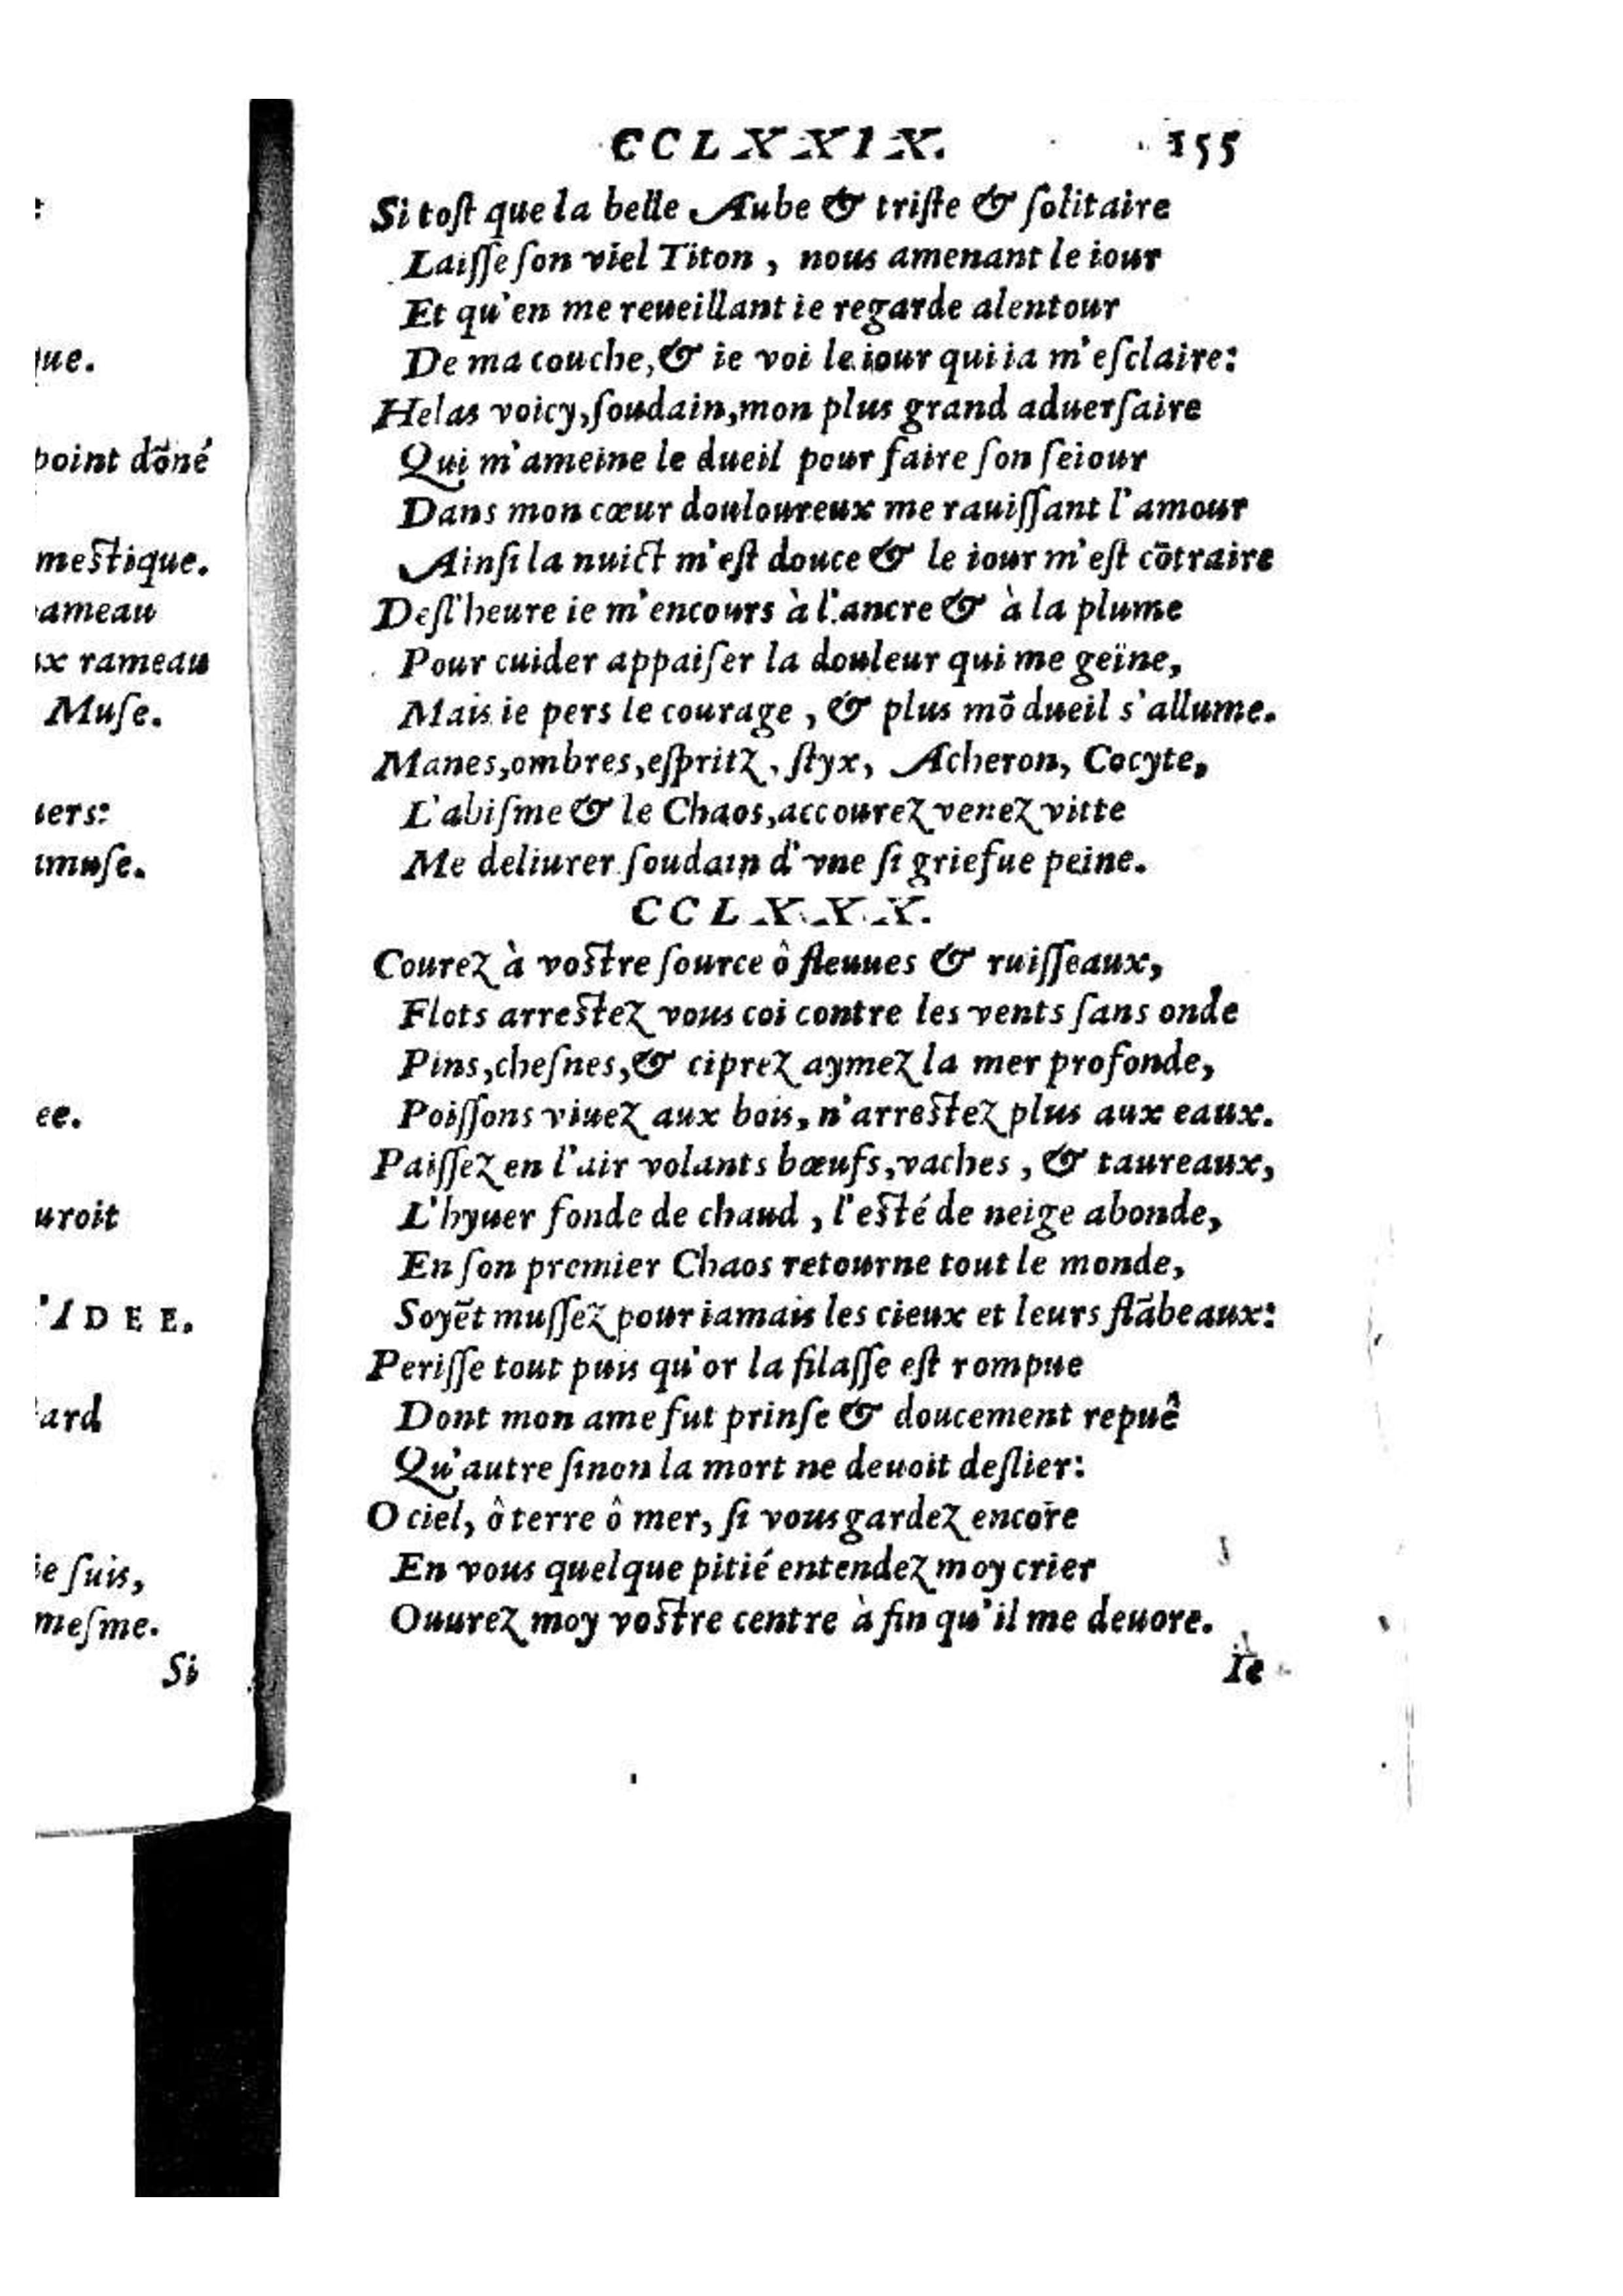 que.
point dõné
mestique.
rameau
x rameau
Muse.
uers:
amuse.
ee.
uroit
'IDEE.
tard
ie ſuis,
meſme.
Si
CCLXXIX. 155
Si toſt que la belle Aube & triſte & ſolitaire
Laiſſe ſon viel Titon, nous amenant le iour
Et qu'en me reueillant ie regarde alentour
De ma couche, & ie voi le iour qui ia m'eſclaire:
Helas voicy, ſoudain, mon plus grand aduerſaire
Qui m'ameine le dueil pour faire ſon ſeiour
Dans mon cœur douloureux me rauiſſant l'amour
Ainſi la nuict m'eſt douce & le iour m'eſt cõtraire
Deſl'heure ie m'encours à l'ancre & à la plume
Pour cuider appaiſer la douleur qui me geïne,
Mais ie pers le courage, & plus mõ dueil s'allume.
Manes, ombres, eſpritz, ſtyx, Acheron, Cocyte,
L'abiſme & le Chaos, accourez venez vitte
Me deliurer ſoudain d'vne ſi griefue peine.
CCLXXX.
Courez à vostre ſource ô fleuues & ruiſſeaux,
Flots arrestez vous coi contre les vents ſans onde
Pins, cheſnes, & ciprez aymez la mer profonde,
Poiſſons viuez aux bois, n'arrestez plus aux eaux.
Paiſſez en l'air volants bœufs, vaches, & taureaux,
L'hyuer fonde de chaud, l'esté de neige abonde,
En ſon premier Chaos retourne tout le monde,
Soyẽt muſſez pour iamais les cieux et leurs flãbeaux:
Periſſe tout puis qu'or la filaſſe eſt rompue
Dont mon ame fut prinſe & doucement repuê
Qu'autre ſinon la mort ne deuoit deſlier:
O ciel, ô terre ô mer, ſi vous gardez encore
En vous quelque pitié entendez moy crier
Ouurez moy vostre centre à fin qu'il me deuore.
Ie